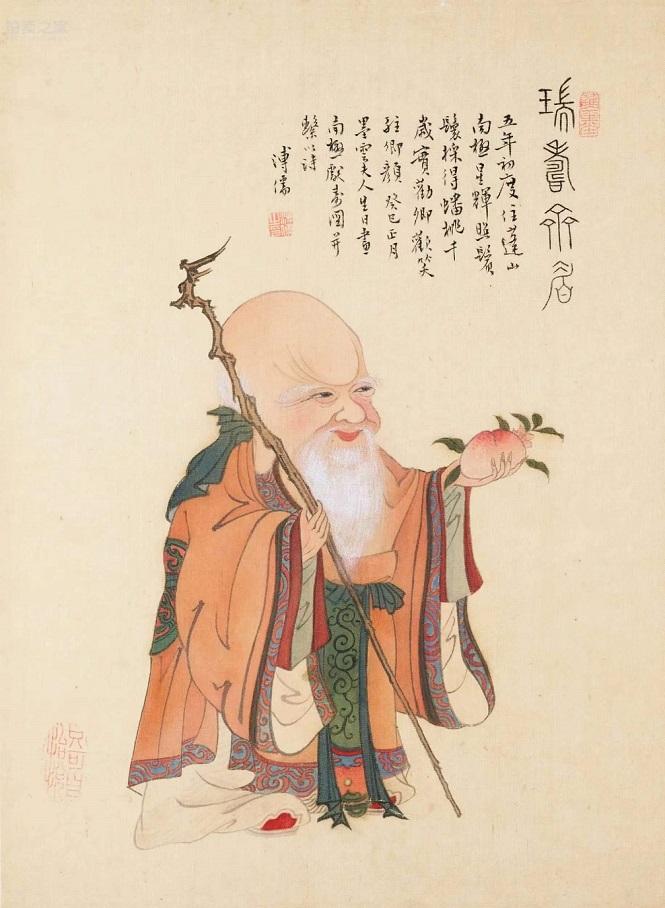 壽
五年初度住蓬山
南極星輝照鬢
鬟採得蟠桃千
歲實勸卿歡笑
駐卿顏 癸巳正月
墨雲夫人生日畫
南極獻壽圖并
繫以詩
溥儒
只可自
怡悅